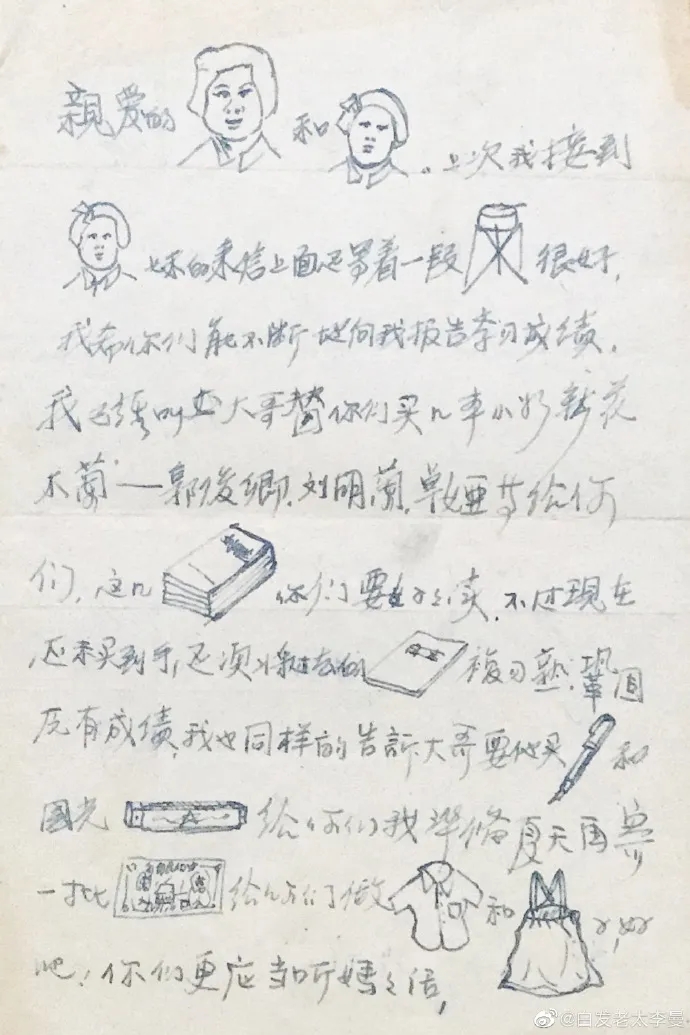 親爱的 和 。上次我接到
妹的来信上面还写着一段 很好，
我希你们能不断地向我报告学习成绩．
我已经叫 大哥替你们买几本小
木蘭——郭俊卿．刘明蘭． 等给你
们，这几 你们要好好读，不过現在
还未买到手，还须将过去的 複习熟，鞏固
原有成绩，我也同样的告訴大哥要他买 和
國光 给你们我準备夏天再寄
一批 给你们做 和 ，好
吧！你们更应当听媽媽话，
@白发老太李曼